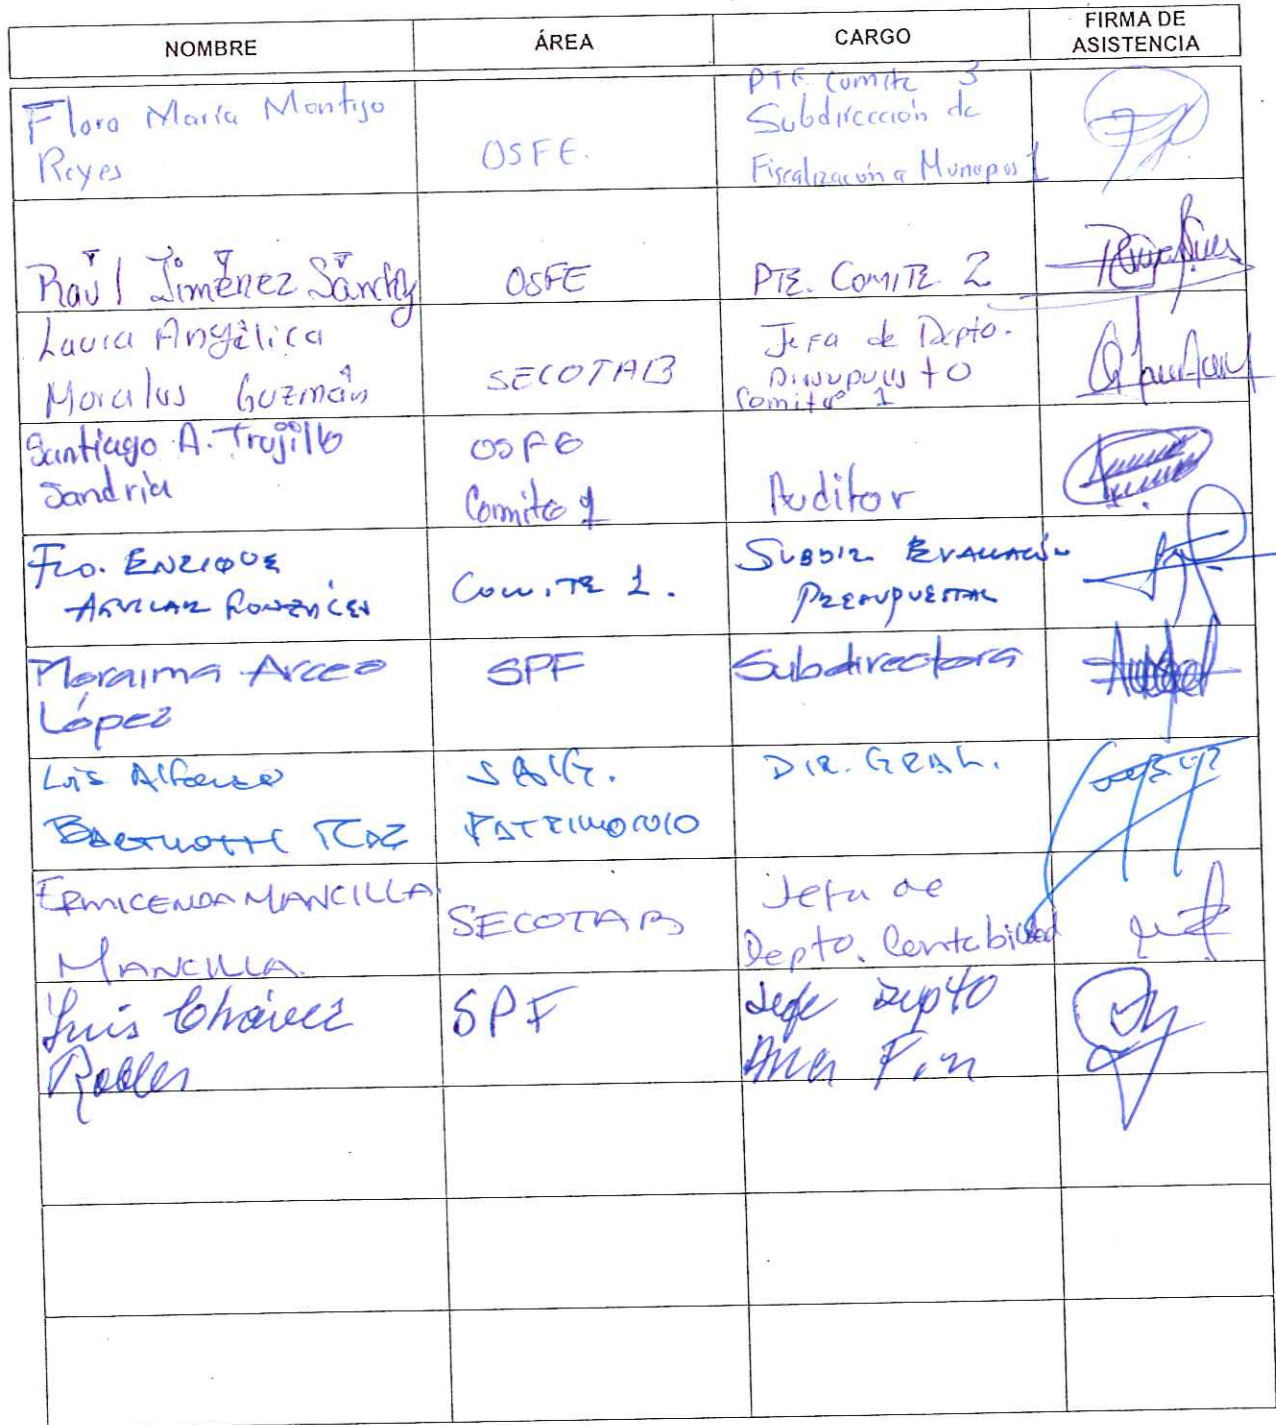 NOMBRE
ÁREA
CARGO
FIRMA DE
ASISTENCIA
Flora María Montejo
Reyes
OSFE.
PTE. Comite 3
Subdirección de
Fiscalización a Municipios 1
Raúl Jiménez Sánchez
OSFE
PTE. COMITE 2
Laura Angélica
Morales Guzmán
SECOTAB
Jefa de Depto.
Presupuesto
Comité 1
Santiago A. Trujillo
Sandria
OSFE
Comite 1
Auditor
Fco. ENRIQUE
AGUILAR
COMITE 1.
SUBDIR EVALUACIÓN
PRESUPUESTAL
Moraima Arceo
López
SPF
Subdirectora
Luis Alfonso
PATRIMONIO
DIR. GRAL.
ERMICENDA MANCILLA
MANCILLA.
SECOTAB
Jefa de
Depto. Contabilidad
Luis Chávez
Robles
SPF
Jefe Depto
Fin